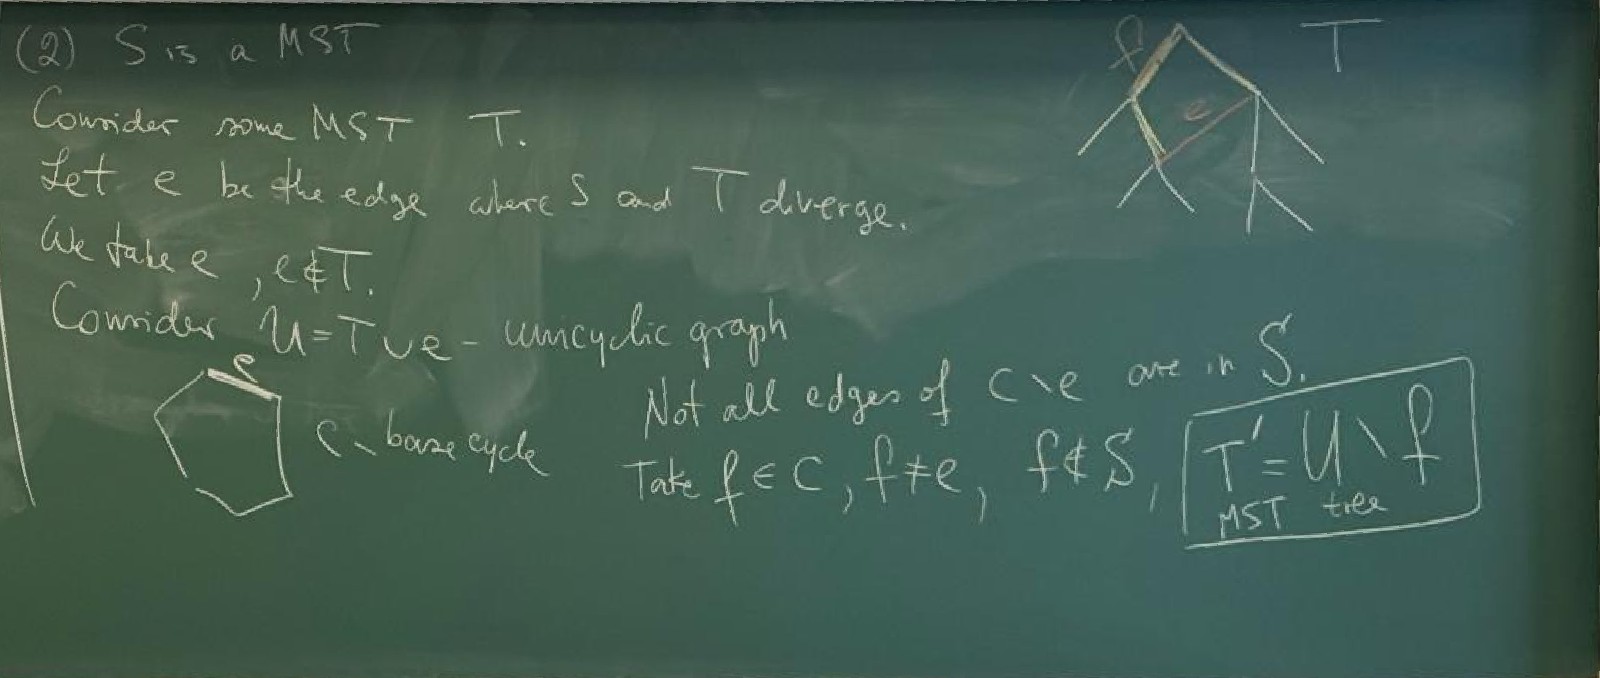 (2) S is a MST
f
T
e
Consider some MST T.
Let e be the edge where S and T diverge.
We take e, e∉T.
Consider U=T∪e - unicyclic graph
e
C - base cycle
Not all edges of C\e are in S.
Take f∈C, f≠e, f∉S, T'=U\f
MST tree